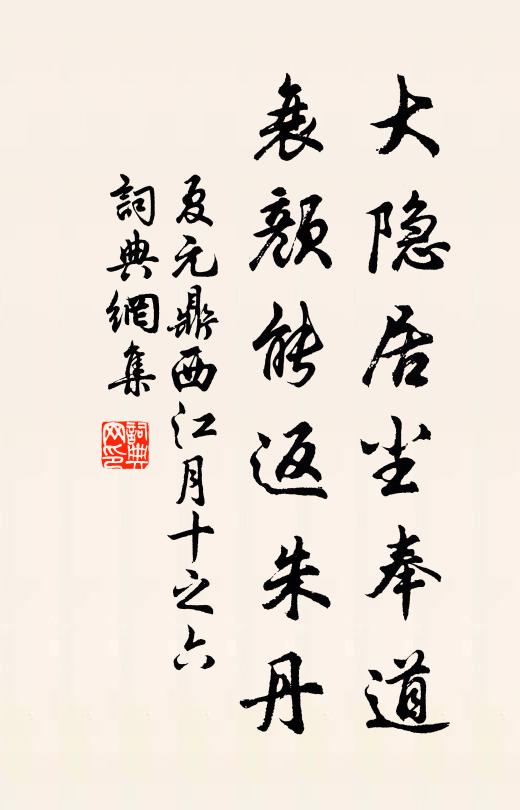 大隐居尘奉道
衰颜能返朱丹
夏元鼎西江月十之六
詞典網集
詞典网印